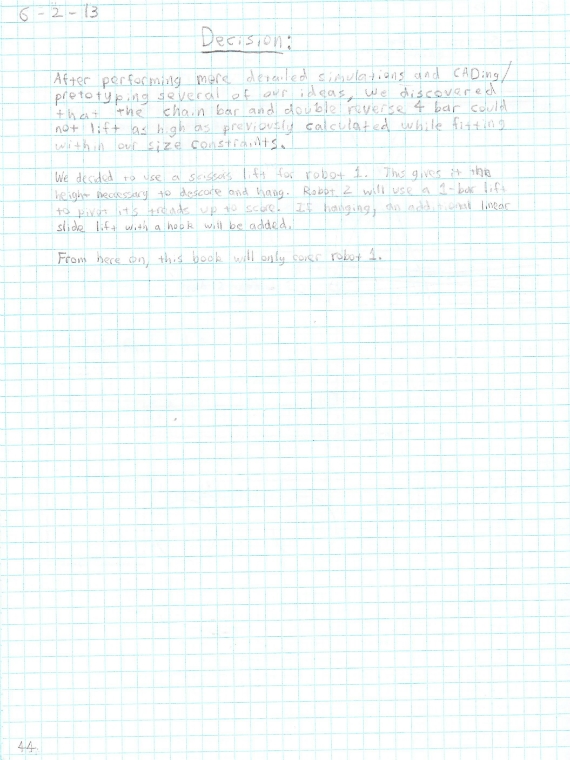 6-2-13
Decision:
After performing more detailed simulations and CADing/
prototyping several of our ideas, we discovered
that the chain bar and double reverse 4 bar could
not lift as high as previously calculated while fitting
within our size constraints.
We decided to use a scissors lift for robot 1. This gives it the
height necessary to descore and hang. Robot 2 will use a 1-bar lift
to pivot its treads up to score. If hanging, an additional linear
slide lift with a hook will be added.
From here on, this book will only cover robot 1.
44